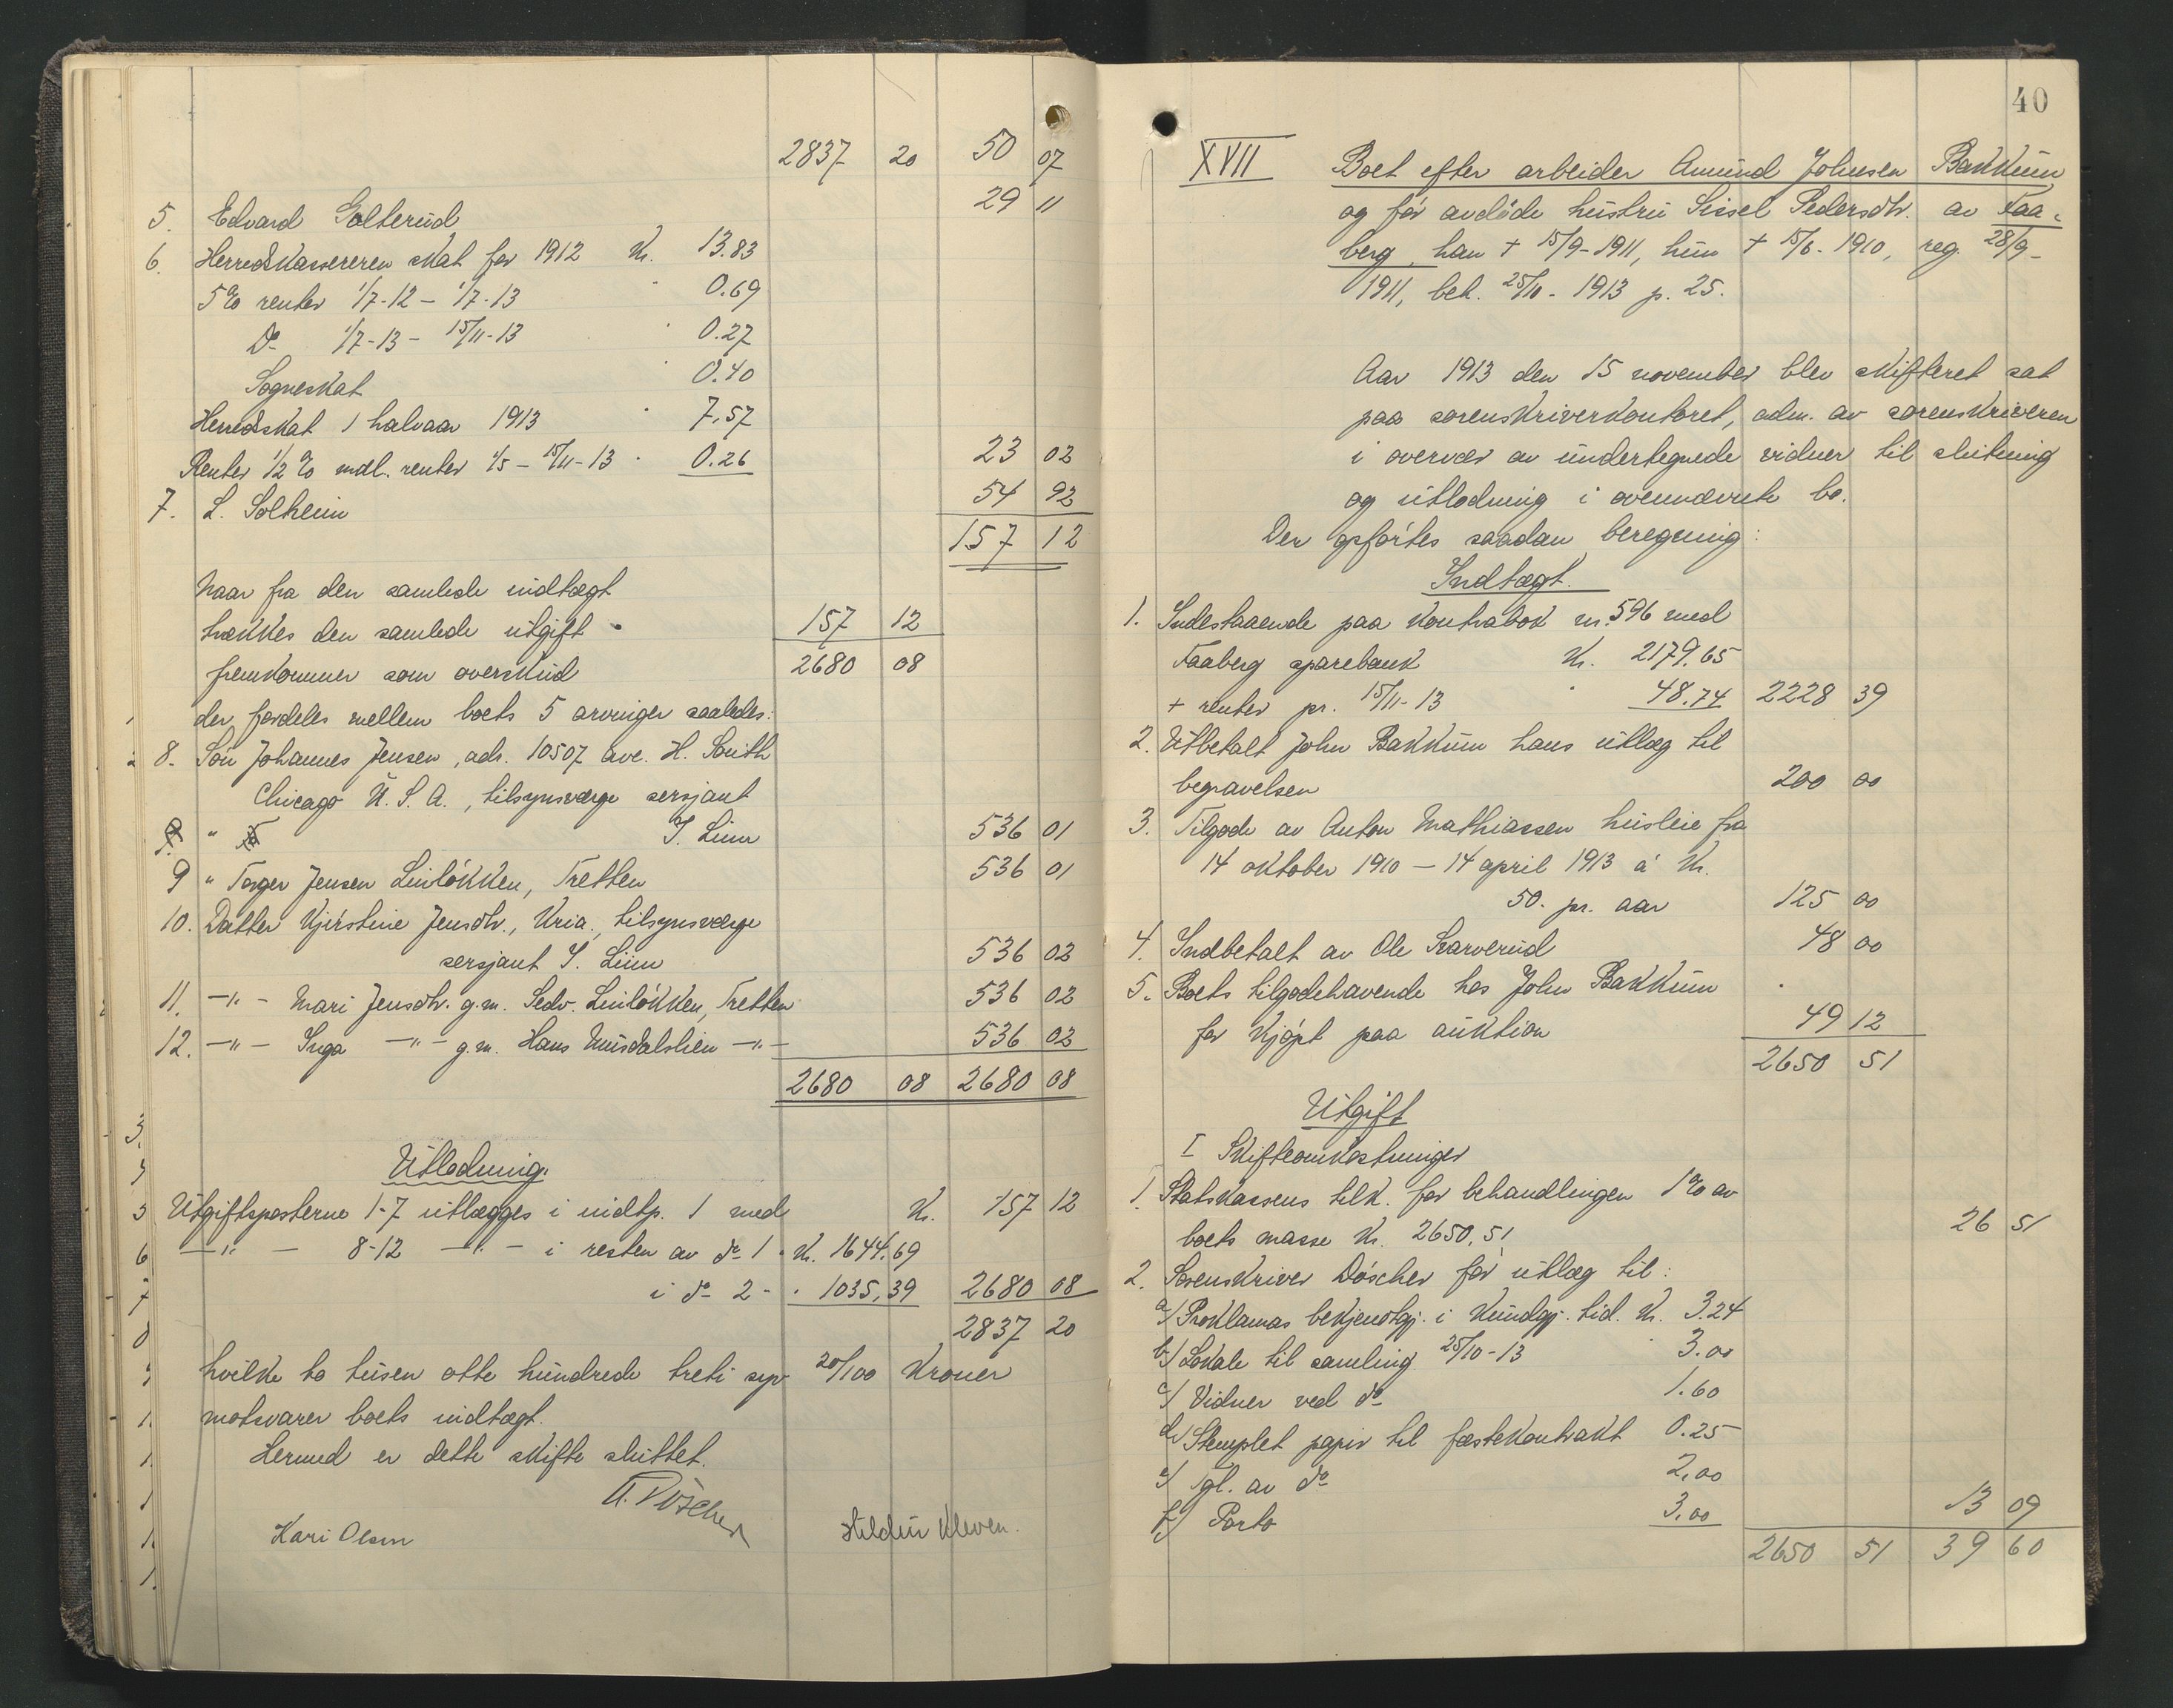 2837 20 50 07
5. Edvard Golterud 29 11
6. Herredskassereren skat for 1912 Kr. 13.83
5% renter 1/7-12 - 1/7-13 0.69
Do 1/7-13 - 15/11-13 0.27
Sogneskat 0.40
Herredsskat 1 halvaar 1913 7.57
Renter 1/2% mdl. renter 1/5 - 15/11-13 0.26 23 02
7. L. Solheim 54 92
157 12
Naar fra den samlede indtægt
trækkes den samlede utgift 157 12
fremkommer som overskud 2680 08
der fordeles mellem boets 5 arvinger saaledes:
8. Søn Johannes Jensen, adr. 10507 ave. H. South
Chicago U.S.A., tilsynsværge sersjant
" I. Linn 536 01
9 " Torger Jensen Linløkken, Tretten 536 01
10. Datter Kjerstine Jensdtr., Kria., tilsynsværge
sersjant I. Linn 536 02
11. -"- Mari Jensdtr. g.m. Sedv. Linløkken, Tretten 536 02
12. -"- Inga -"- g.m. Hans Musdalslien -"- 536 02
2680 08 2680 08
Utlodning.
Utgiftsposterne 1-7 utlægges i indtp. 1 med Kr. 157 12
-"- 8-12 -"- i resten av do 1 - Kr. 1644.69
i do 2 - 1035,39 2680 08
2837 20
hvilke to tusen otte hundrede treti syv 20/100 Kroner
motsvarer boets indtægt.
Hermed er dette skifte sluttet.
A. Døscher
Kari Olsen Hildur Kleven.
40
XVII Boet efter arbeider Amund Johnsen Bakkum
og før avdøde hustru Sissel Pedersdtr. av Faa-
berg, han + 15/9-1911, hun + 15/6-1910, reg. 28/9-
1911, beh. 25/10-1913 p. 25.
Aar 1913 den 15 november blev skifteret sat
paa sorenskriverkontoret, adm. av sorenskriveren
i overvær av undertegnede vidner til slutning
og utlodning i ovennævnte bo.
Der opførtes saadan beregning:
Indtægt.
1. Indestaaende paa Kontrabok nr. 596 med
Faaberg sparebank Kr. 2179.65
+ renter pr. 15/11-13 48.74 2228 39
2. Utbetalt John Bakkum hans utlæg til
begravelsen 200 00
3. Tilgode av Anton Mathiassen husleie fra
14 oktober 1910 - 14 april 1913 á Kr.
50. pr. aar 125 00
4. Indbetalt av Ole Skarverud 48 00
5. Boets tilgodehavende hos John Bakkum
for kjøpt paa auktion 49 12
2650 51
Utgift
I Skifteomkostninger
1. Statskassens tilk. for behandlingen 1% av
boets masse Kr. 2650,51 26 51
2. Sorenskriver Døscher for utlæg til:
a) Proklamas bekjendtgj. i Kundgj. tid. Kr. 3.24
b) Lokale til samling 25/10-13 3.00
c) Vidner ved do 1.60
d) Stemplet papir til fæstekontrakt 0.25
e) Tgl. av do 2,00
f) Porto 3,00 13 09
2650 51 39 60